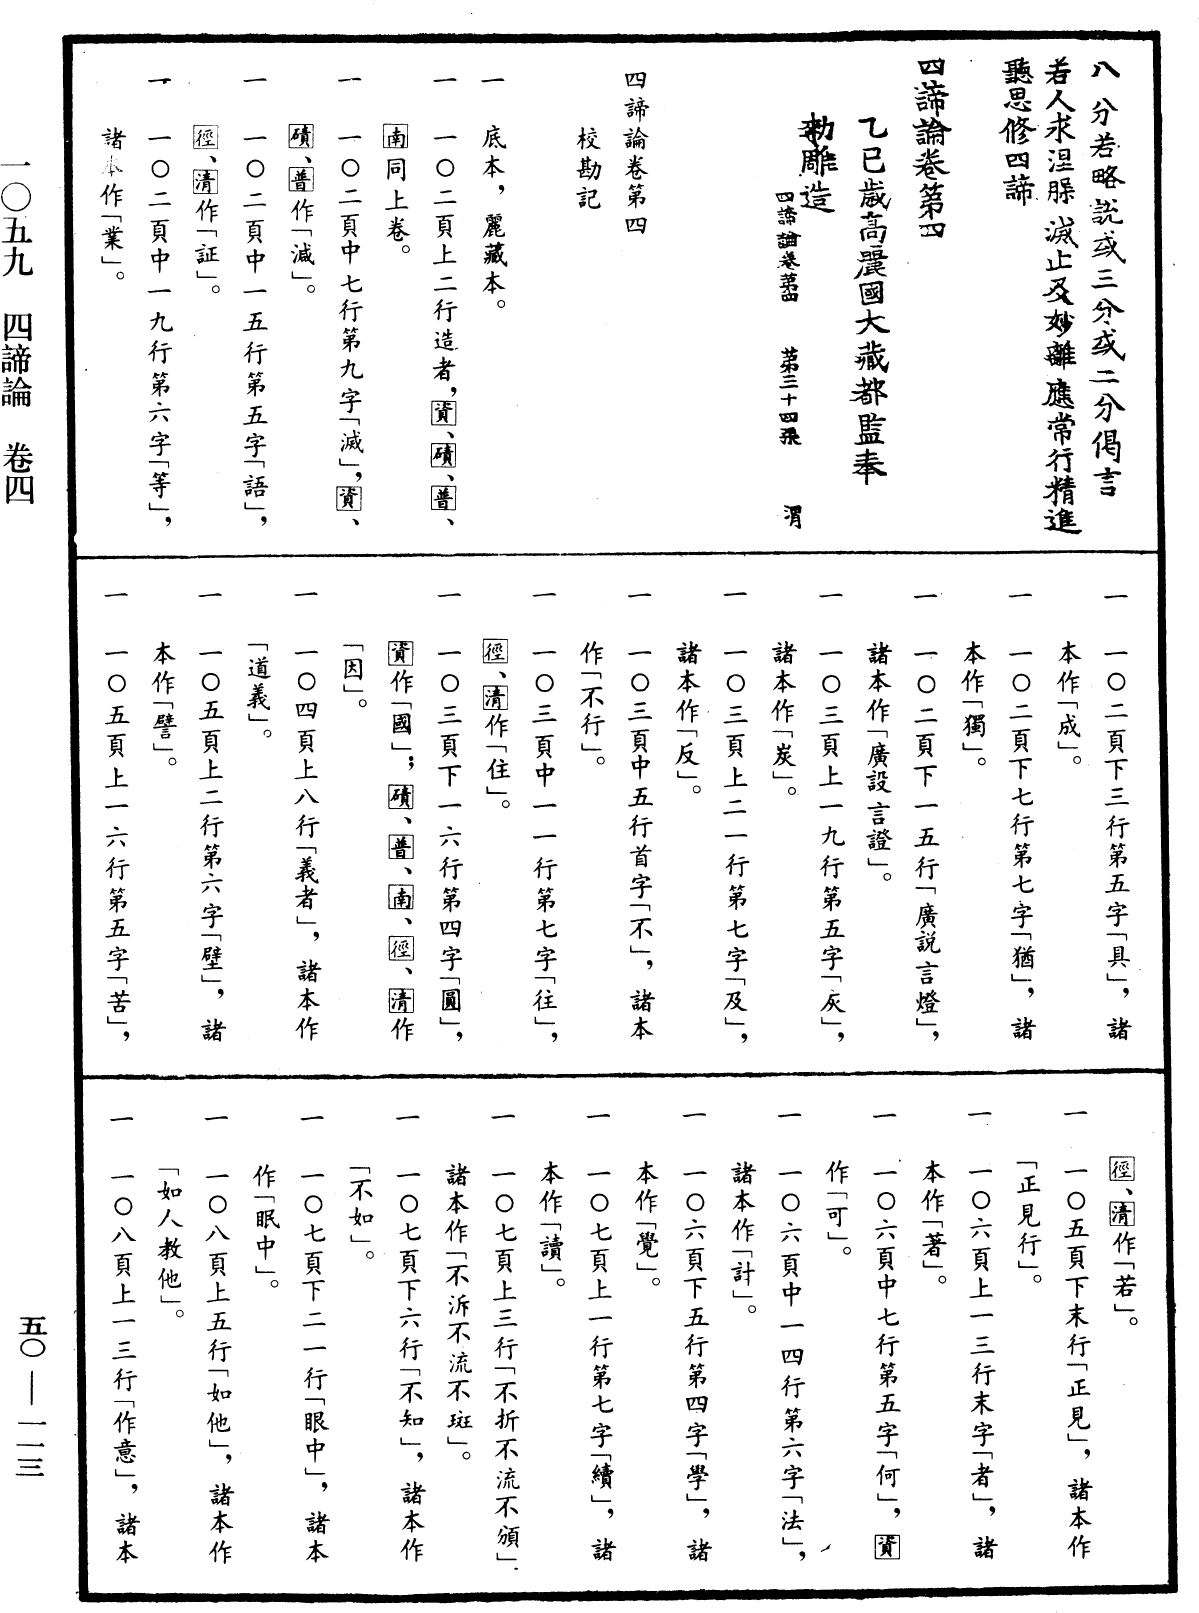 八分若略說或三分或二分偈言
若人求涅槃 滅止及妙離 應常行精進
聽思修四諦
四諦論卷第四
乙巳歲高麗國大藏都監奉
勅雕造
四諦論卷第四 第三十四張 渭
四諦論卷第四
校勘記
一 底本，麗藏本。
一 一〇二頁上二行造者，資、磧、普、
南同上卷。
一 一〇二頁中七行第九字「滅」，資、
磧、普作「減」。
一 一〇二頁中一五行第五字「語」，
徑、清作「証」。
一 一〇二頁中一九行第六字「等」，
諸本作「業」。
一 一〇二頁下三行第五字「具」，諸
本作「成」。
一 一〇二頁下七行第七字「猶」，諸
本作「獨」。
一 一〇二頁下一五行「廣説言燈」，
諸本作「廣設言證」。
一 一〇三頁上一九行第五字「灰」，
諸本作「炭」。
一 一〇三頁上二一行第七字「及」，
諸本作「反」。
一 一〇三頁中五行首字「不」，諸本
作「不行」。
一 一〇三頁中一一行第七字「往」，
徑、清作「住」。
一 一〇三頁下一六行第四字「圓」，
資作「國」；磧、普、南、徑、清作
「因」。
一 一〇四頁上八行「義者」，諸本作
「道義」。
一 一〇五頁上二行第六字「壁」，諸
本作「譬」。
一 一〇五頁上一六行第五字「苦」，
徑、清作「若」。
一 一〇五頁下末行「正見」，諸本作
「正見行」。
一 一〇六頁上一三行末字「者」，諸
本作「著」。
一 一〇六頁中七行第五字「何」，資
作「可」。
一 一〇六頁中一四行第六字「法」，
諸本作「計」。
一 一〇六頁下五行第四字「學」，諸
本作「覺」。
一 一〇七頁上一行第七字「續」，諸
本作「讀」。
一 一〇七頁上三行「不折不流不頒」，
諸本作「不泝不流不斑」。
一 一〇七頁下六行「不知」，諸本作
「不如」。
一 一〇七頁下二一行「眼中」，諸本
作「眠中」。
一 一〇八頁上五行「如他」，諸本作
「如人教他」。
一 一〇八頁上一三行「作意」，諸本
一〇五九 四諦論 卷四
五〇——一一三